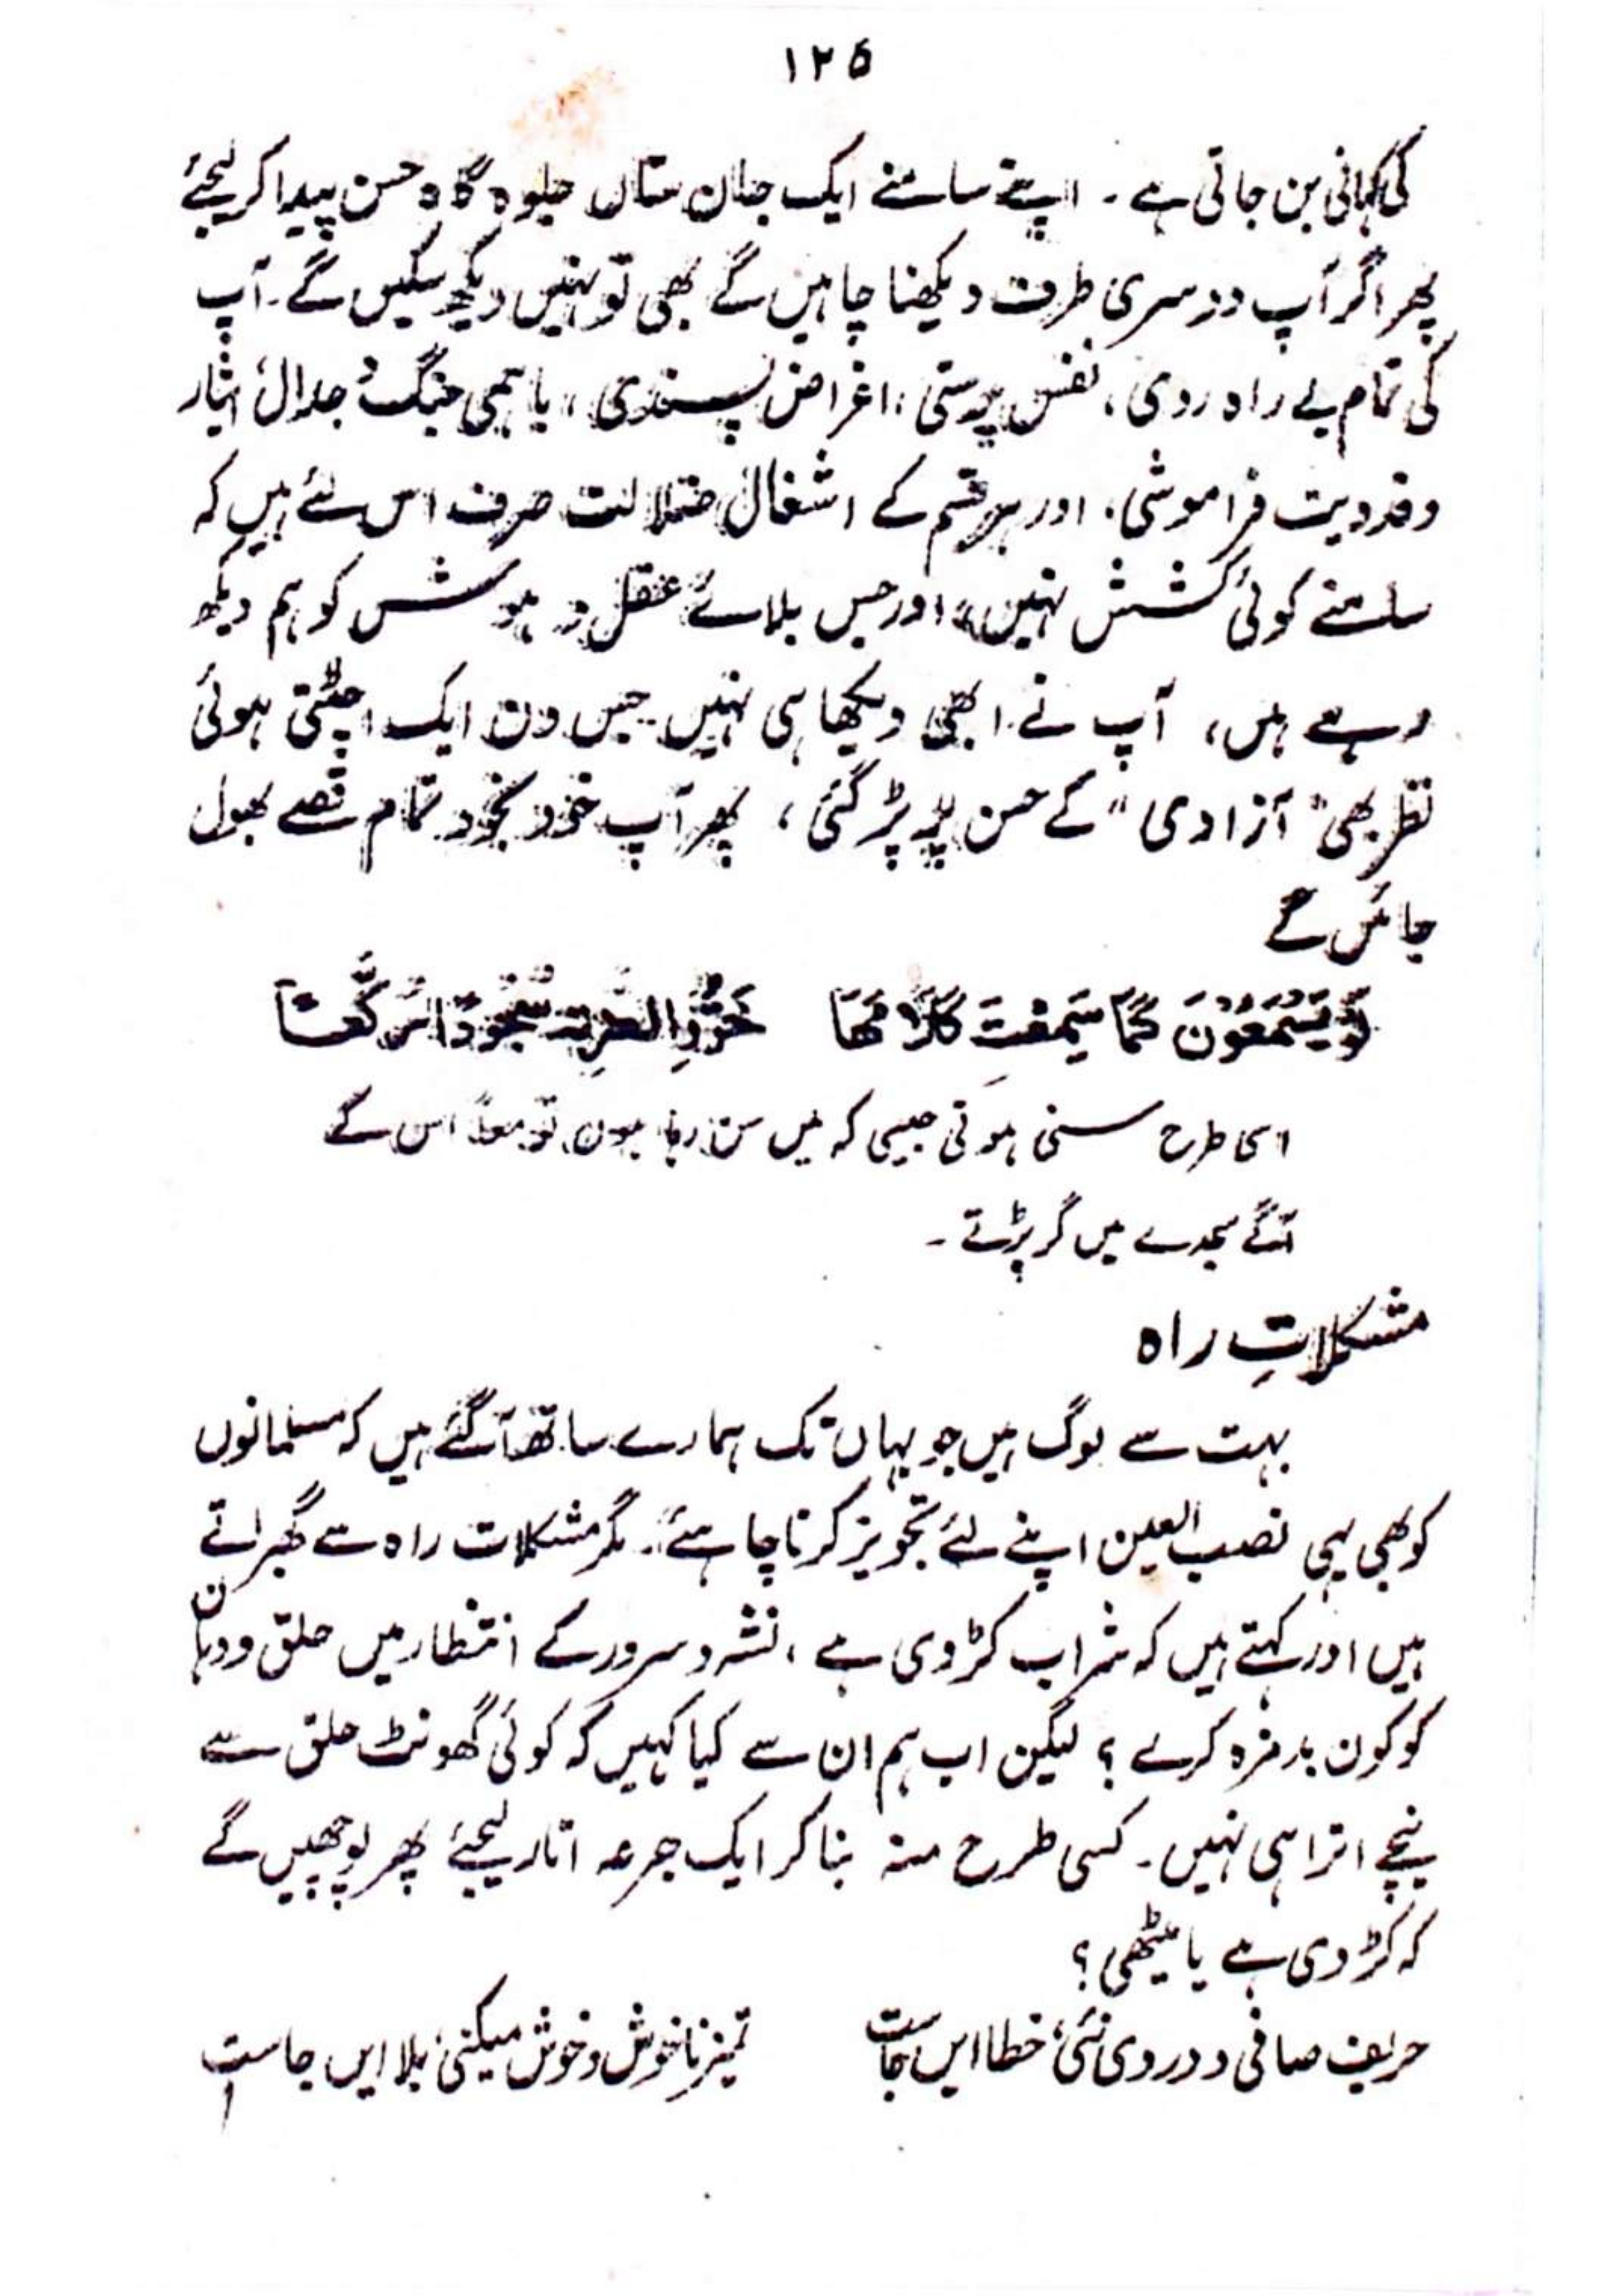 ۱۲۵
کی کہانی بن جاتی ہے ۔ اپنے سامنے ایک جان ستاں جلوہ گاہ حسن پیدا کر لیجئے
پھر اگر آپ دوسری طرف دیکھنا چاہیں گے بھی تو نہیں دیکھ سکیں گے ۔ آپ
کی تمام بے راہ روی ، نفس پرستی ، اغراض پسندی ، باہمی جنگ و جدال ، ایثار
و فدویت فراموشی ، اور ہر قسم کے اشغال ضلالت صرف اس لئے ہیں کہ
سامنے کوئی کشش نہیں ، اور جس بلائے عقل و ہوش کو ہم دیکھ
رہے ہیں ، آپ نے ابھی دیکھا ہی نہیں ۔ جس دن ایک اچٹتی ہوئی
نظر بھی " آزادی " کے حسن پر پڑ گئی ، پھر آپ خود بخود تمام قصے بھول
جائیں گے
لَوْ يَسْمَعُوْنَ كَمَا سَمِعْتُ كَلَامَهَا خَرُّوْا لِعَزَّةَ سُجَّدًا وَّ رُكَّعًا
اسی طرح سنی ہوتی جیسی کہ میں سن رہا ہوں تو معاً اس کے
آگے سجدے میں گر پڑتے ۔
مشکلاتِ راہ
بہت سے لوگ ہیں جو یہاں تک ہمارے ساتھ آگئے ہیں کہ مسلمانوں
کو بھی یہی نصب العین اپنے لئے تجویز کرنا چاہئے ۔ مگر مشکلات راہ سے گھبراتے
ہیں اور کہتے ہیں کہ شراب کڑوی ہے ، نشہ و سرور کے انتظار میں حلق و دہان
کو کون بدمزہ کرے ؟ لیکن اب ہم ان سے کیا کہیں کہ کوئی گھونٹ حلق سے
نیچے اترا ہی نہیں ۔ کسی طرح منہ بنا کر ایک جرعہ اتار لیجئے پھر پوچھیں گے
کہ کڑوی ہے یا میٹھی ؟
حریف صافی و دردی نئی خطا ایں جاست تمیز ناخوش و خوش میکنی بلا ایں جاست